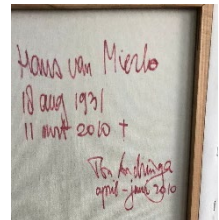 Hans van Mierlo
18 aug 1931
11 mrt 2010 †
Ton Andringa
april - juni 2010